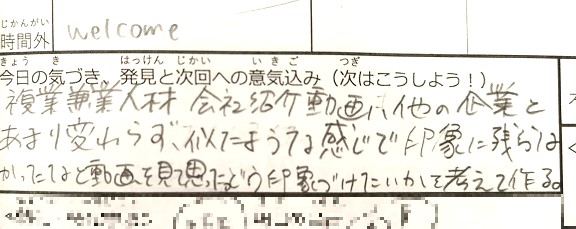 じかんがい
時間外 welcome
きょう き はっけん じかい いきご つぎ
今日の気づき、発見と次回への意気込み（次はこうしよう！）
複業兼業人材 会社紹介動画は、他の企業と
あまり変わらず、似たような感じで印象に残らな
かったなと動画を見て思った。どう印象づけたいかを考えて作る。